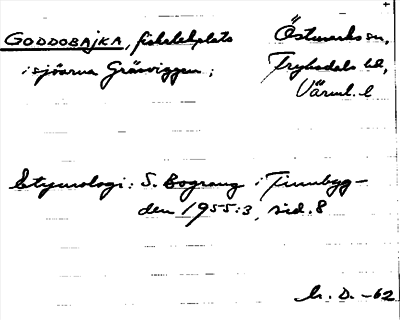 GODDOBAJKA, fisklekplats
i sjöarna Gräsviggen;
Östmarks sn,
Fryksdals hd,
Värml. l
Etymologi: S. Bograng i Finnbyg-
den 1955:3, sid. 8
h. D. -62